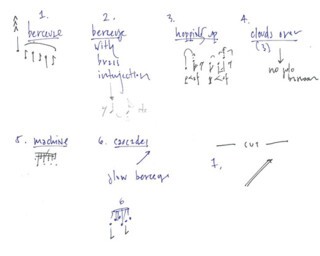 1.
berceuse
2.
berceuse
with
brass
interjection
3.
hopping up
4.
clouds over
(3)
no
5. machine
6. cascades
slow berceuse
6
— CUT —
7.